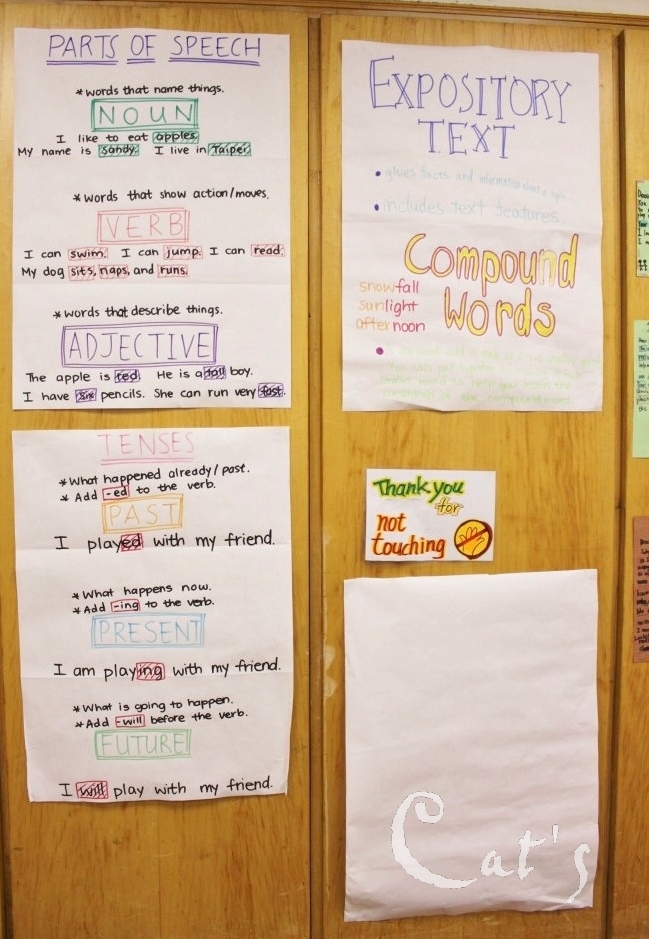 PARTS OF SPEECH
* words that name things.
NOUN
I like to eat apples.
My name is Sandy. I live in Taipei.
* words that show action/moves.
VERB
I can swim. I can jump. I can read.
My dog sits, naps, and runs.
* words that describe things.
ADJECTIVE
The apple is red. He is a tall boy.
I have six pencils. She can run very fast.
TENSES
* What happened already/past.
* Add -ed to the verb.
PAST
I played with my friend.
* What happens now.
* Add -ing to the verb.
PRESENT
I am playing with my friend.
* What is going to happen.
* Add -will before the verb.
FUTURE
I will play with my friend.
EXPOSITORY
TEXT
• gives facts and information about a topic.
• includes text features
Compound
Words
snowfall
sunlight
afternoon
Thank you
for
not
touching
Cat's